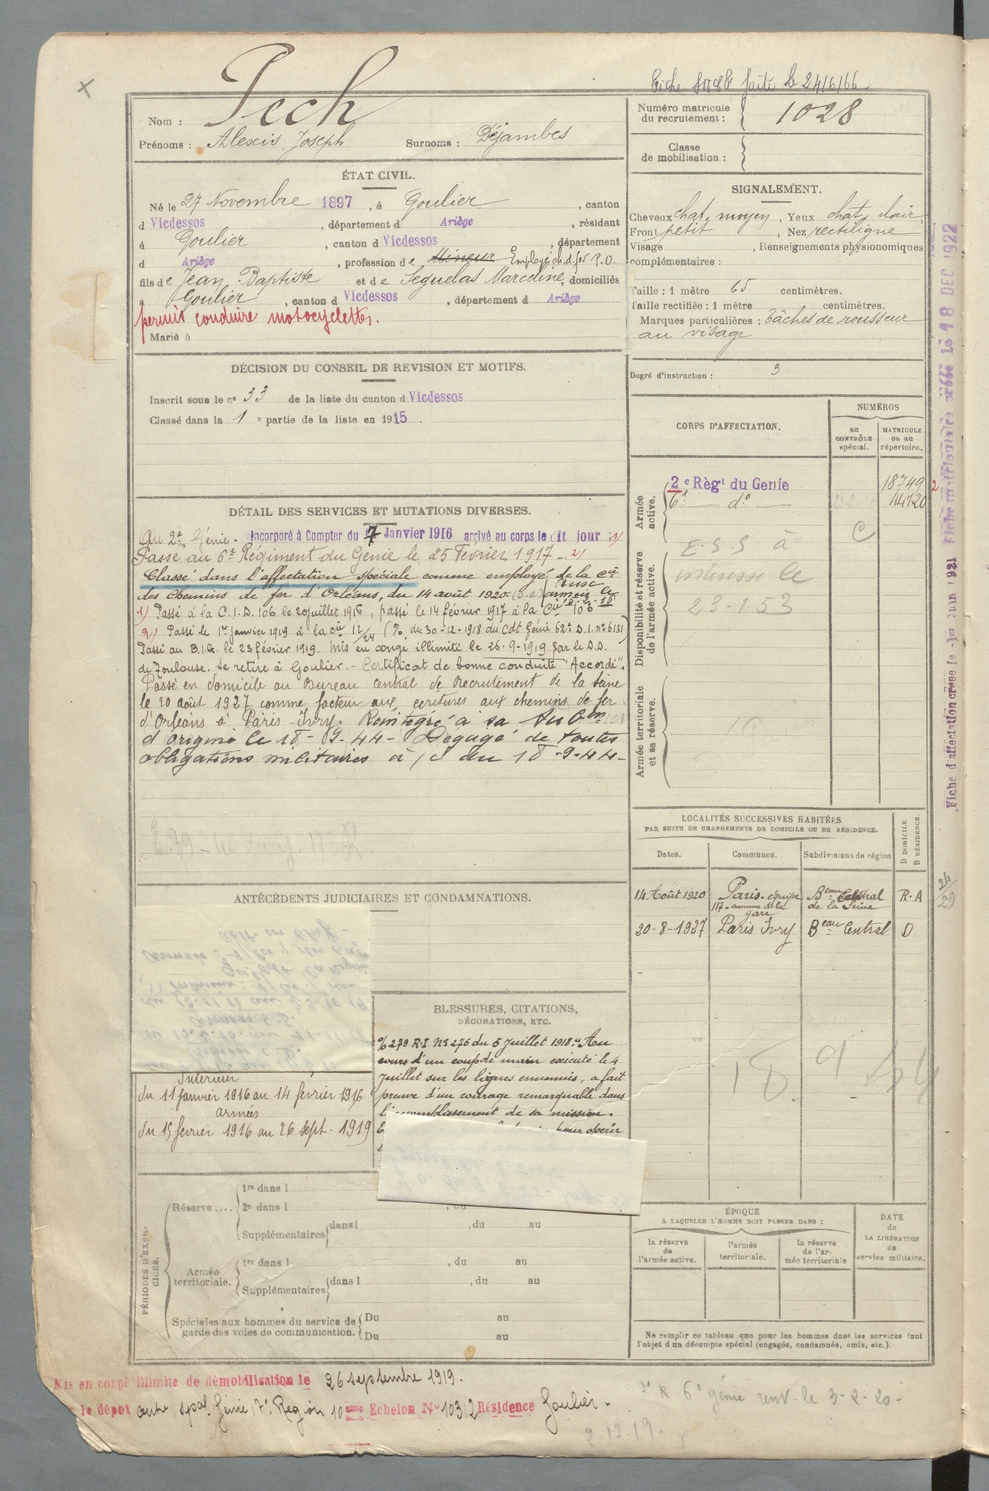 Fiche faite le 24/6/66
Nom : Pech
Prénoms : Alexis Joseph Surnoms : Déjambes
Numéro matricule
du recrutement : 1028
Classe
de mobilisation :
ÉTAT CIVIL.
Né le 27 Novembre 1897, à Goulier, canton
d Vicdessos, département d Ariège, résidant
à Goulier, canton d Vicdessos, département
d Ariège, profession de Mineur Employé ch. d. fer P.O.
fils de Jean Baptiste et de Seguelas Marceline, domiciliés
à Goulier, canton d Vicdessos, département d Ariège
permis conduire motocyclettes.
Marié à
SIGNALEMENT.
Cheveux chat. moyen, Yeux chat. clair
Front petit, Nez rectiligne
Visage , Renseignements physionomiques
complémentaires :
Taille : 1 mètre 65 centimètres.
Taille rectifiée : 1 mètre centimètres.
Marques particulières : tâches de rousseur
au visage
Degré d'instruction : 3
DÉCISION DU CONSEIL DE REVISION ET MOTIFS.
Inscrit sous le n° 33 de la liste du canton d Vicdessos
Classé dans la 1e partie de la liste en 1915
DÉTAIL DES SERVICES ET MUTATIONS DIVERSES.
Au 2e Génie. Incorporé à Compter du 7 Janvier 1916 arrivé au corps le dit jour 1)
Passé au 6e Régiment du Génie le 25 février 1917 2)
Classé dans l'affectation spéciale comme employé de la Cie
des Chemins de fer d'Orléans, du 14 août 1920
1) Passé à la C.I.D. 106 le 20 juillet 1916, passé le 14 février 1917 à la Cie
2) Passé le 1er janvier 1919 à la Cie 12/24 (N. du 30-12-1918 du Cdt Génie 62e D.I. n° 6131)
Passé au B.I.G. le 23 février 1919. Mis en congé illimité le 26-9-1919 par le D.D.
de Toulouse. Se retire à Goulier. Certificat de bonne conduite "Accordé".
Passé en domicile au Bureau Central de Recrutement de la Seine
le 20 août 1927 comme facteur aux écritures aux chemins de fer
d'Orléans à Paris-Ivry. Réintégré à sa Subon
d'origine le 18-9-44 - Dégagé de toutes
obligations militaires à/c du 18-9-44
CORPS D'AFFECTATION.
NUMÉROS
au
CONTRÔLE
spécial.
MATRICULE
ou au
répertoire.
Armée
active.
2e Règt du Genie 18749
6e do 14120
Disponibilité et réserve
de l'armée active.
E.S.S à
le
23-1-53
Armée territoriale
et sa réserve.
Fiche d'affectation créée le 1er Juin 1921 Fiche matriculaire créée le 18 DEC 1922
LOCALITÉS SUCCESSIVES HABITÉES
PAR SUITE DE CHANGEMENTS DE DOMICILE OU DE RÉSIDENCE.
Dates. Communes. Subdivisions de région D DOMICILE. R RÉSIDENCE.
14 Août 1920 Paris Beau Central de la Seine R.A
20-8-1927 Paris Ivry Beau Central D
18 9 44
ANTÉCÉDENTS JUDICIAIRES ET CONDAMNATIONS.
Intérieur
du 11 janvier 1916 au 14 février 1916
armées
du 15 février 1916 au 26 sept. 1919
BLESSURES, CITATIONS,
DÉCORATIONS, ETC.
279 R.I. N° 276 du 5 juillet 1918. Au
cours d'un coup de main exécuté le 4
juillet sur les lignes ennemies, a fait
preuve d'un courage remarquable dans
l'accomplissement de sa mission.
PÉRIODES D'EXERCICES.
Réserve....
1re dans l
2e dans l , du
Supplémentaires dans l , du au
Armée
territoriale.
1re dans l , du au
Supplémentaires dans l , du au
Spéciales aux hommes du service de
garde des voies de communication.
Du au
Du au
ÉPOQUE
A LAQUELLE L'HOMME DOIT PASSER DANS :
la réserve
de
l'armée active.
l'armée
territoriale.
la réserve
de l'armée territoriale
DATE
de
LA LIBÉRATION
du
service militaire.
Ne remplir ce tableau que pour les hommes dont les services font
l'objet d'un décompte spécial (engagés, condamnés, omis, etc.).
Mis en congé illimité de démobilisation le 26 septembre 1919.
le dépôt Génie, 7e Région 10ème Echelon N° 10312 Résidence Goulier.
6e génie le 3-2-20.
2-12-19.